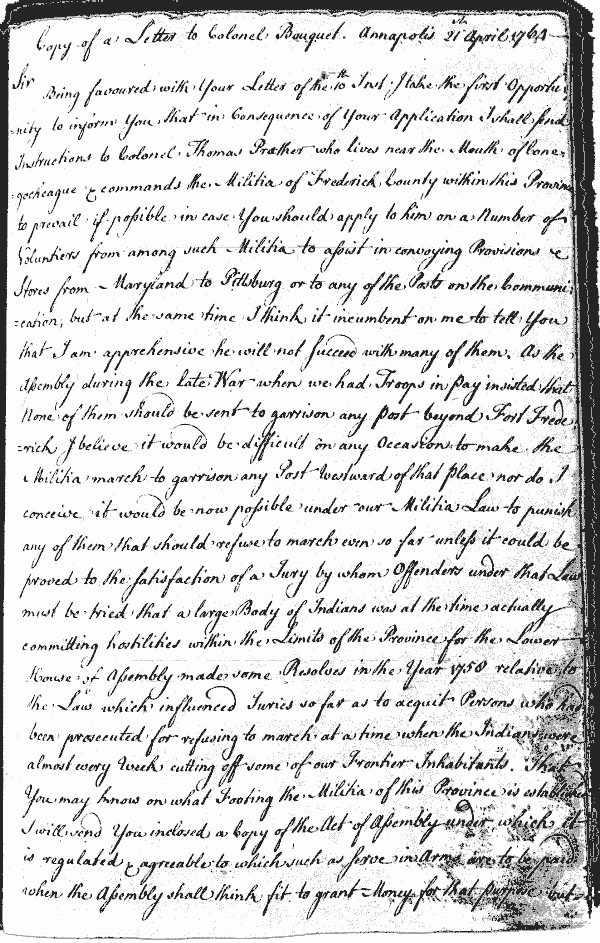 Copy of a Letter to Colonel Bouquet. Annapolis 21st April 1764
Sir
Being favoured with Your Letter of the 10th Inst. I take the first Opportu
=nity to inform You that in Consequence of Your Application I shall send
Instructions to Colonel Thomas Prather who lives near the Mouth of Cone=
=gocheague & commands the Militia of Frederick County within this Province
to prevail if possible in case You should apply to him on a Number of
Voluntiers from among such Militia to assist in convoying Provisions &
Stores from Maryland to Pittsburg or to any of the Posts on the Communi=
=cation, but at the same time I think it incumbent on me to tell You
that I am apprehensive he will not succeed with many of them. As the
Assembly during the late War when we had Troops in pay insisted that
None of them should be sent to garrison any Post beyond Fort Frede=
=rick I believe it would be difficult on any Occasion to make the
Militia march to garrison any Post Westward of that place nor do I
conceive it would be now possible under our Militia Law to punish
any of them that should refuse to march even so far unless it could be
proved to the satisfaction of a Jury by whom Offenders under that Law
must be tried that a large Body of Indians was at the time actually
committing hostilities within the Limits of the Province for the Lower
House of Assembly made some Resolves in the Year 1758 relative to
the Law which influenced Juries so far as to acquit Persons who had
been prosecuted for refusing to march at a time when the Indians were
almost every Week cutting off some of our Frontier Inhabitants. That
You may know on what Footing the Militia of this Province is established
I will send You inclosed a Copy of the Act of Assembly under which it
is regulated & agreeable to which such as serve in Arms are to be paid
when the Assembly shall think fit to grant Money for that purpose but